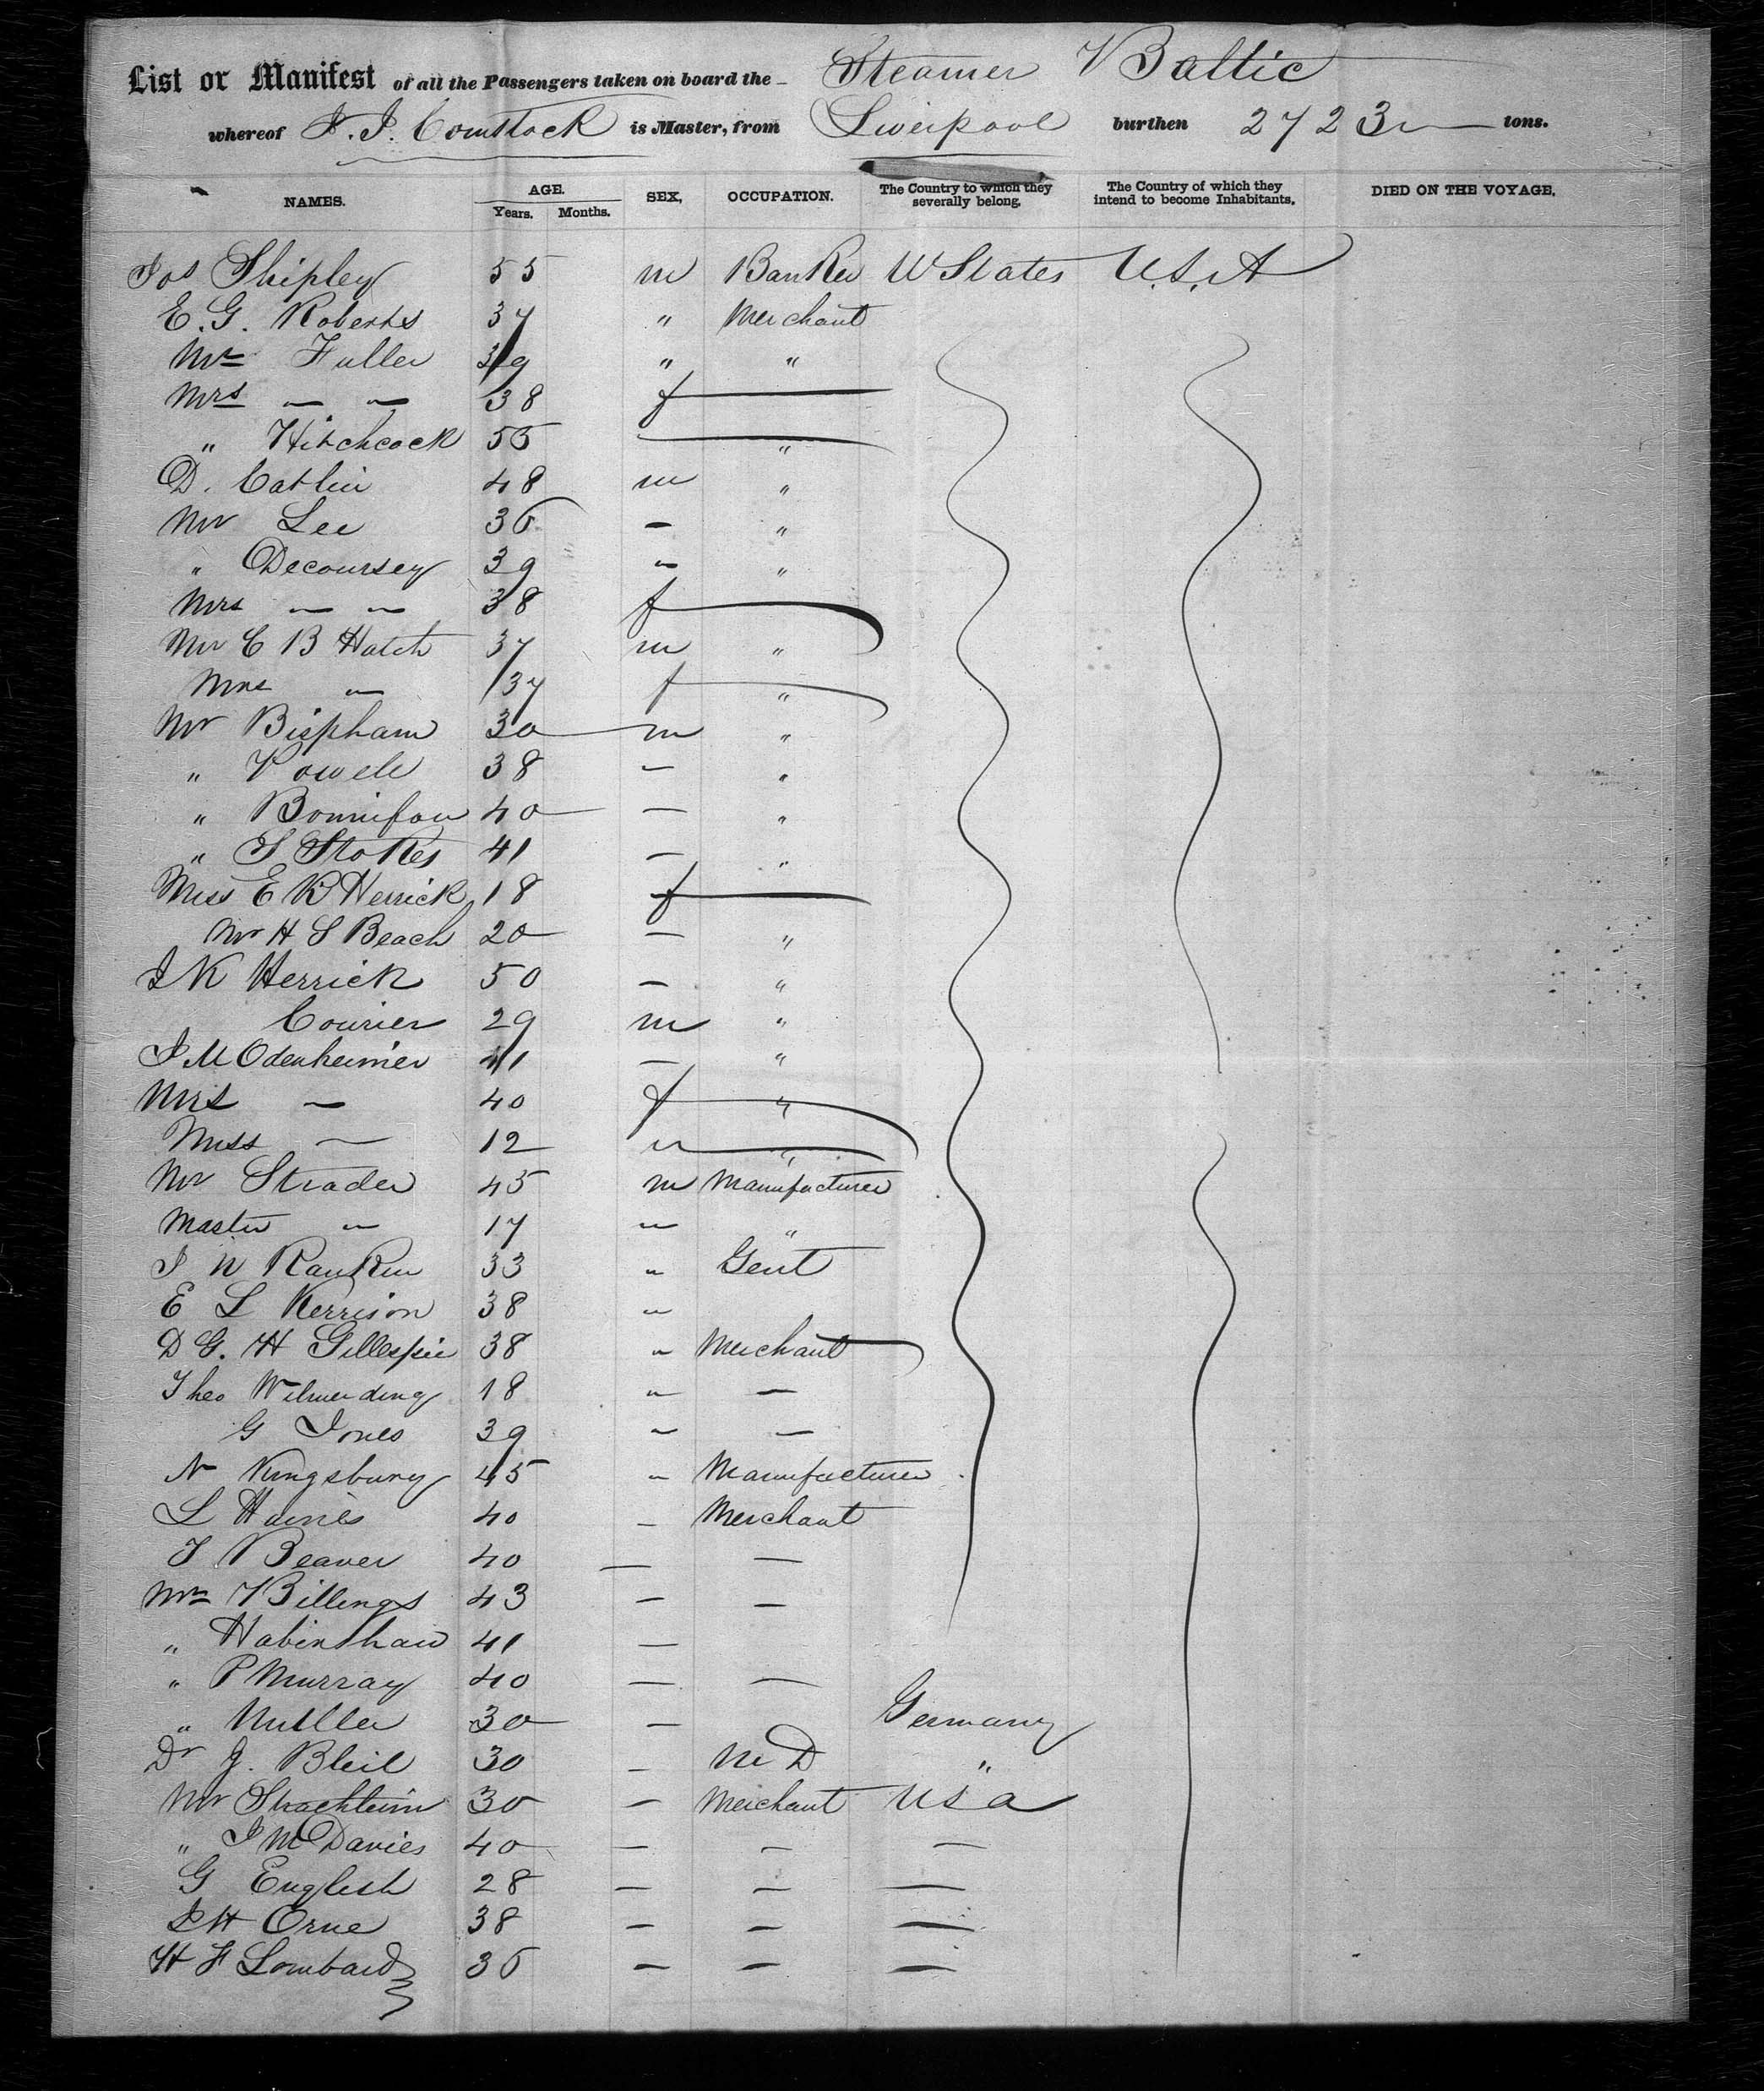 List or Manifest of all the Passengers taken on board the Steamer Baltic
whereof J. J. Comstock is Master, from Liverpool burthen 2723 tons.
NAMES. AGE. Years. Months. SEX. OCCUPATION. The Country to which they severally belong. The Country of which they intend to become Inhabitants. DIED ON THE VOYAGE.
Jos Shipley 55 m Banker U States U.S.A
E. G. Roberts 37 " Merchant
Mr Fuller 39 " "
Mrs — — 38 f —
" Hitchcock 55 — "
D. Catlin 48 m "
Mr Lee 36 — "
" Decoursey 39 " "
Mrs — — 38 f —
Mr C B Hatch 37 m "
Mrs " 37 f "
Mr Bispham 30 m "
" Powell 38 — "
" 40 — "
" S Stokes 41 — "
Miss E K Herrick 18 f —
Mr H S Beach 20 — "
J K Herrick 50 — "
Courier 29 m "
J M Odenheimer 41 — "
Mrs — 40 f "
Miss — 12 " "
Mr Strader 45 m Manufacturer
Master " 17 " "
J W Rankin 33 " Gent
E L Kerrison 38 "
D G. H Gillespie 38 " Merchant
Theo Wilmerding 18 " —
G Jones 39 " —
N Kingsbury 45 " Manufacturer
L Haines 40 — Merchant
T Beaver 40 — —
Mr Billings 43 — —
" Habinshaw 41 —
" P Murray 40 — —
" Muller 30 — Germany
Dr J. Bleil 30 — M D "
Mr 30 — Merchant U S a
" J M Davies 40 — — —
G English 28 — — —
J H Orne 38 — — —
H F Lombard 36 — — —